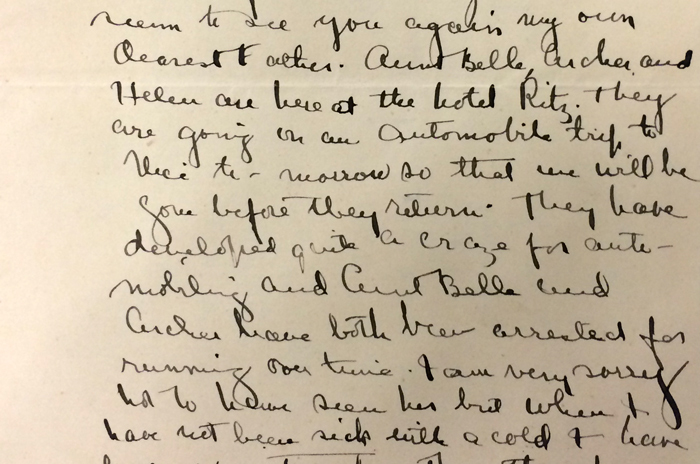 seem to see you again my own
dearest Father. Aunt Belle, Archer and
Helen are here at the hotel Ritz. They
are going on an automobile trip to
Nice to-morrow so that we will be
gone before they return. They have
developed quite a craze for auto-
mobiling and Aunt Belle and
Archer have both been arrested for
running over time. I am very sorry
not to have seen her but when I
have not been sick with a cold I have